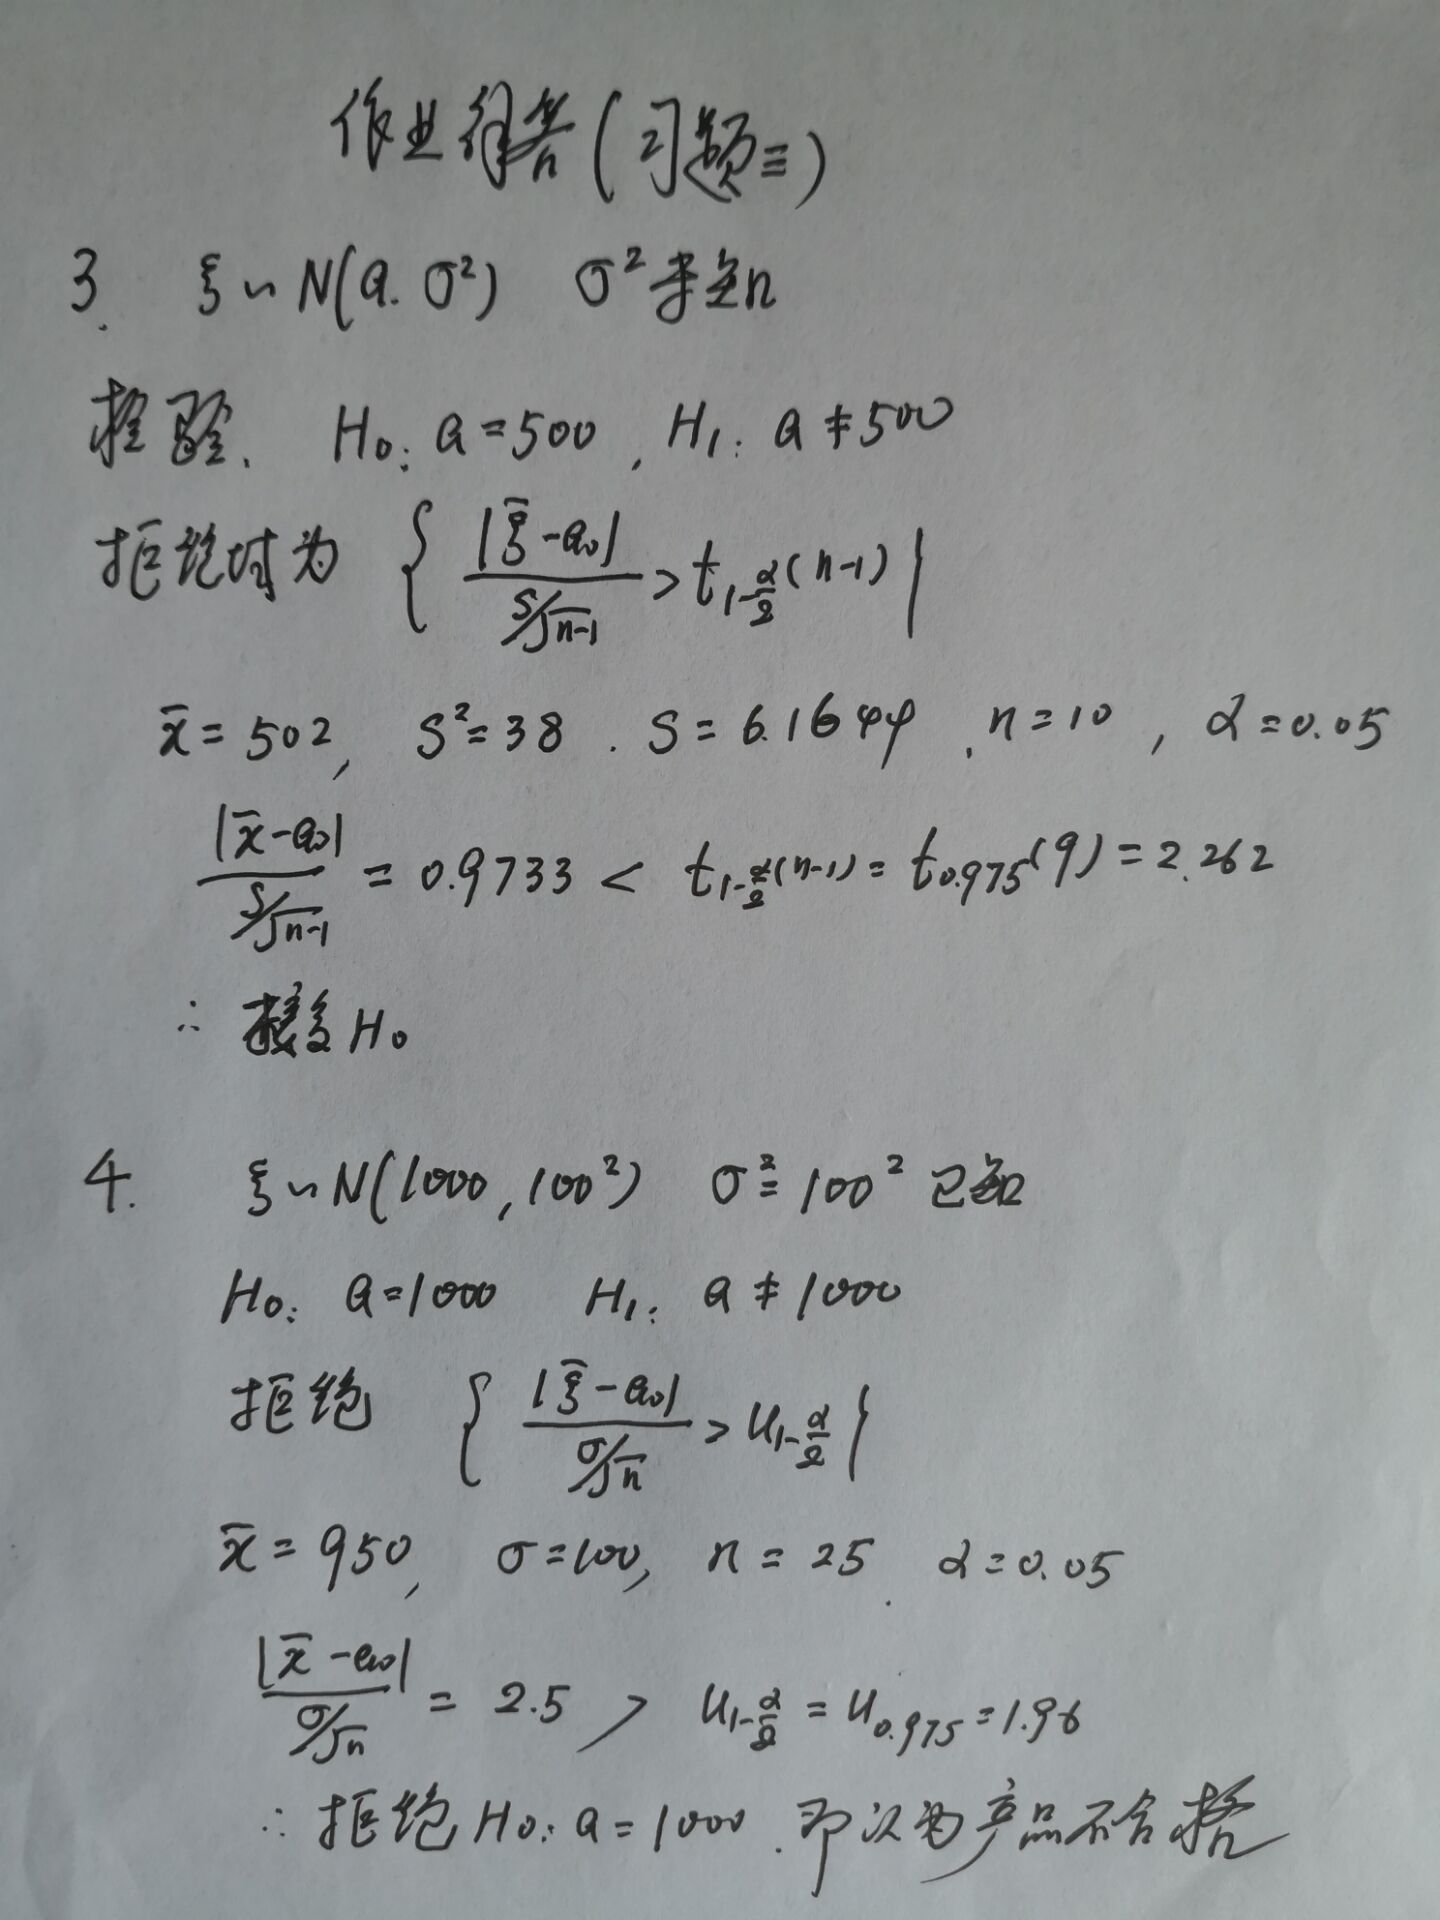 作业解答(习题三)
3. ξ~N(a.σ²) σ²未知
检验. H₀: a=500, H₁: a≠500
拒绝域为 { |ξ̄-a₀| / (S/√(n-1)) > t_{1-α/2}(n-1) }
x̄=502, S²=38. S=6.1644. n=10, α=0.05
|x̄-a₀| / (S/√(n-1)) = 0.9733 < t_{1-α/2}(n-1) = t_{0.975}(9) = 2.262
∴ 接受H₀
4. ξ~N(1000,100²) σ²=100²已知
H₀: a=1000 H₁: a≠1000
拒绝 { |ξ̄-a₀| / (σ/√n) > u_{1-α/2} }
x̄=950, σ=100, n=25. α=0.05
|x̄-a₀| / (σ/√n) = 2.5 > u_{1-α/2} = u_{0.975} = 1.96
∴ 拒绝H₀: a=1000. 即认为产品不合格